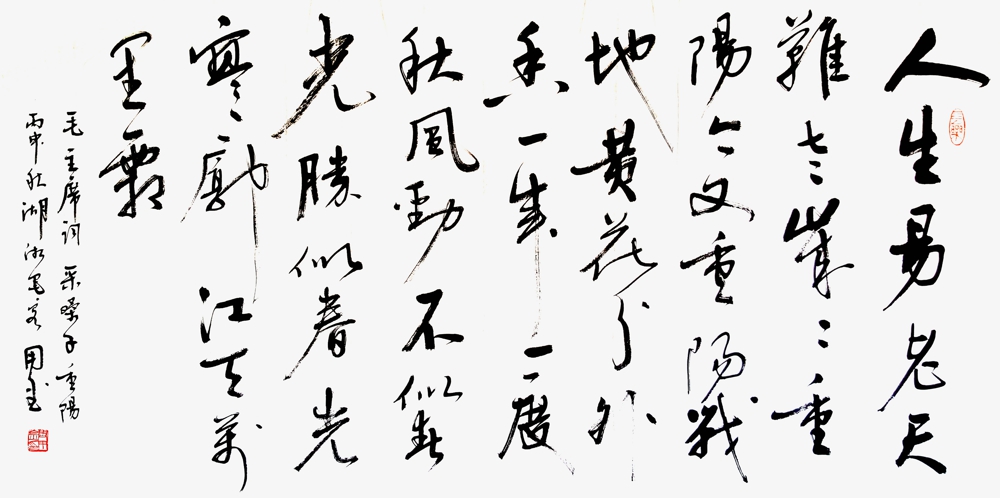 人生易老天
難老歲〻重
陽今又重陽戰
地黃花分外
香一年一度
秋風勁不似春
光勝似春光
寥廓江天萬
里霜
毛主席詞 采桑子重陽
丙申秋湖湘